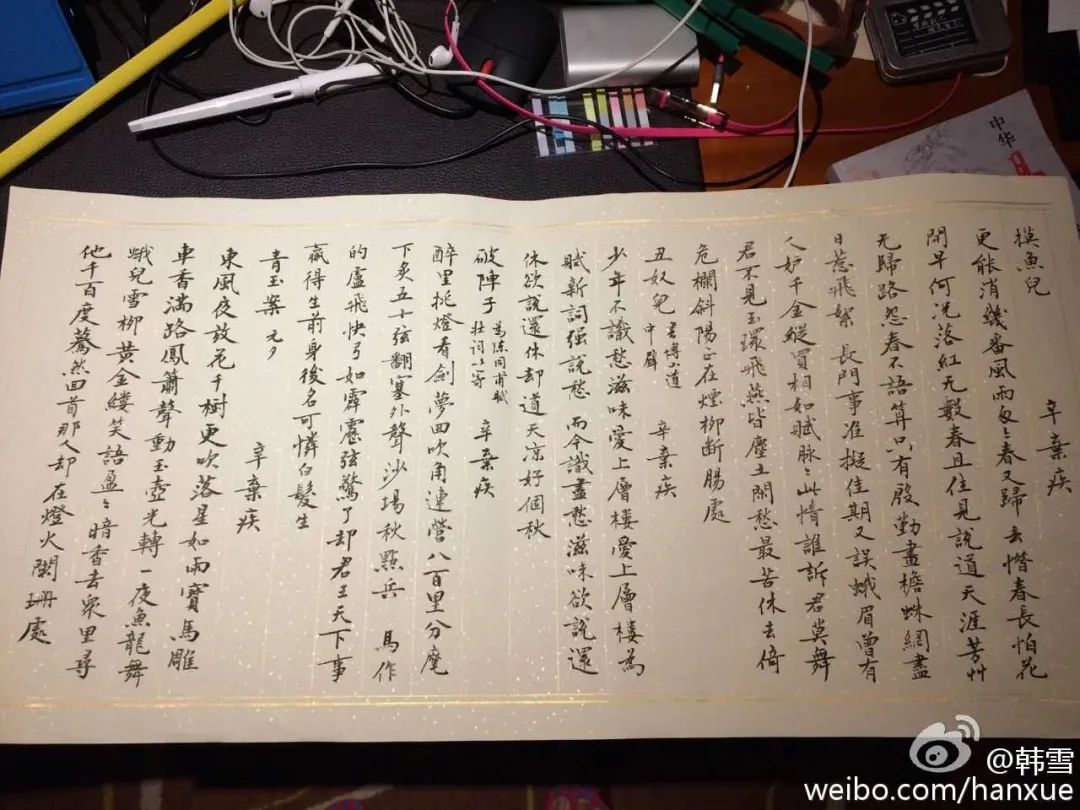 摸魚兒 辛棄疾
更能消幾番風雨匆〻春又歸去惜春長怕花
開早何況落紅无數春且住見說道天涯芳艸
无歸路怨春不語算只有殷勤畫檐蛛網盡
日惹飛絮 長門事准擬佳期又誤蛾眉曾有
人妒千金縱買相如賦脉〻此情誰訴君莫舞
君不見玉環飛燕皆塵土閑愁最苦休去倚
危欄斜陽正在煙柳斷腸處
丑奴兒 書博山道
中壁 辛棄疾
少年不識愁滋味愛上層樓愛上層樓為
賦新詞强說愁 而今識盡愁滋味欲說還
休欲說還休却道天凉好個秋
破陣子 為陳同甫賦
壯詞以寄 辛棄疾
醉里挑燈看劍夢回吹角連營八百里分麾
下炙五十弦翻塞外聲沙場秋點兵 馬作
的盧飛快弓如霹靂弦驚了却君王天下事
贏得生前身後名可憐白髮生
青玉案 元夕 辛棄疾
東風夜放花千樹更吹落星如雨寶馬雕
車香滿路鳳簫聲動玉壺光轉一夜魚龍舞
蛾兒雪柳黃金縷笑語盈〻暗香去衆里尋
他千百度驀然回首那人却在燈火闌珊處
中华
@韩雪
weibo.com/hanxue